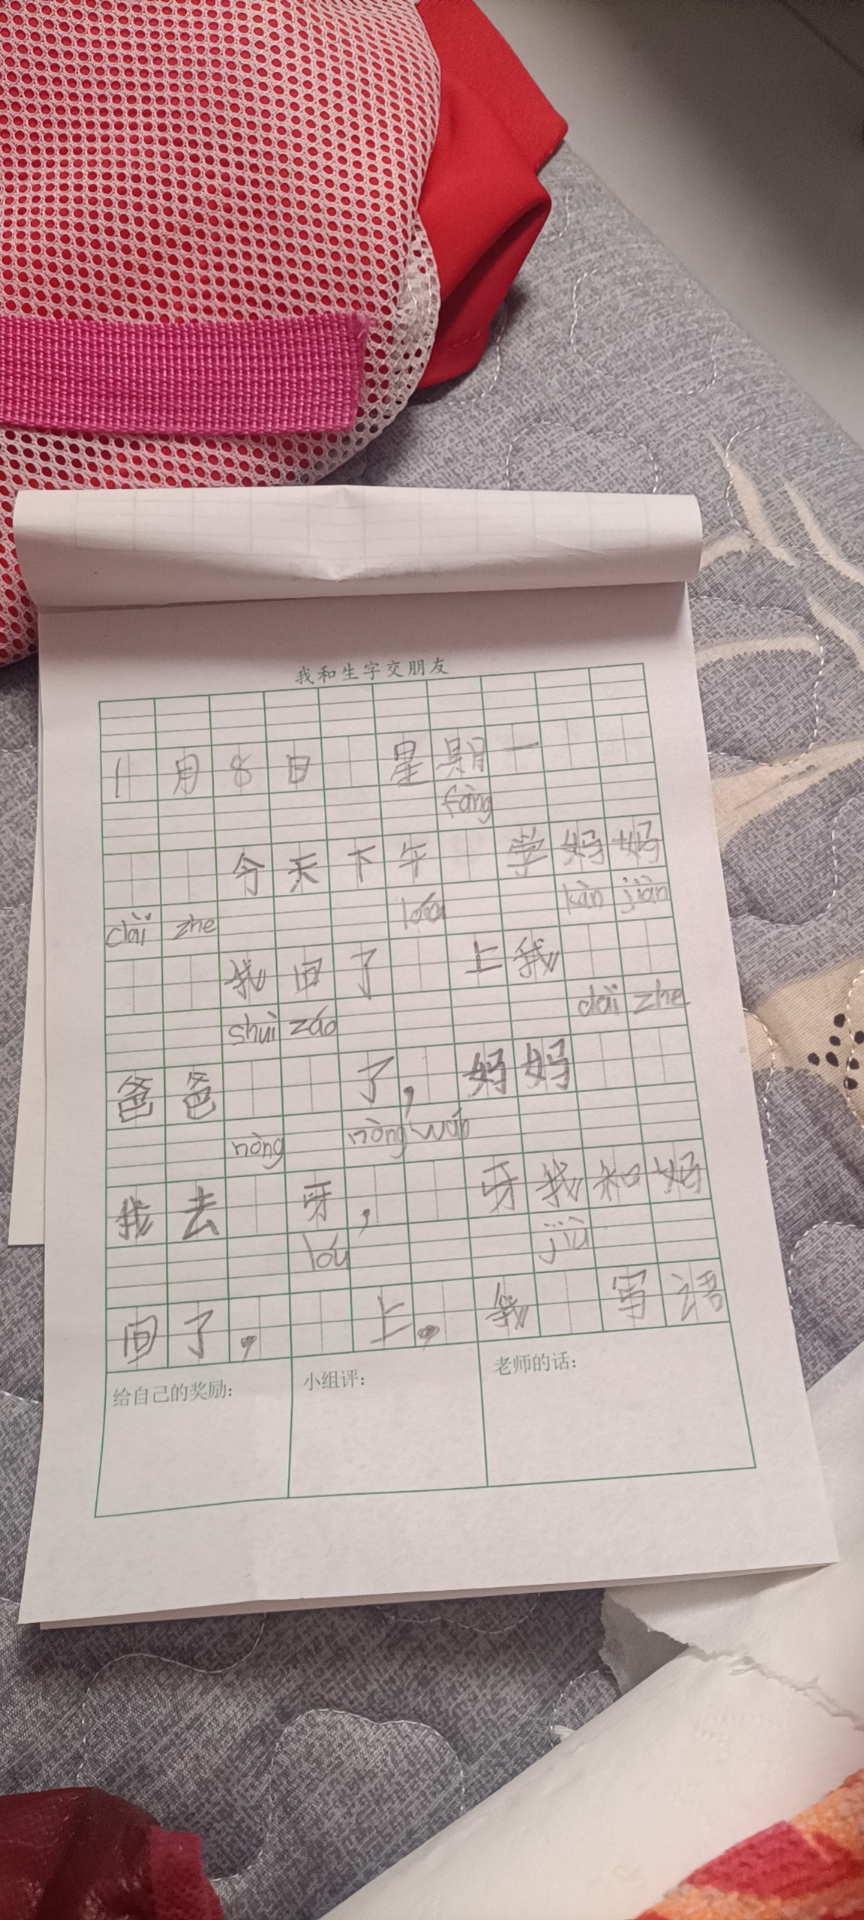 我和生字交朋友
1月8日 星期一
fàng
今天下午 学妈妈
dài zhe lóu kàn jiàn
我回了 上我
shuì záo dài zhe
爸爸 了,妈妈
nòng nòng wán
我去 牙, 牙我和妈
lóu jiù
回了, 上。我 写语
给自己的奖励: 小组评: 老师的话: